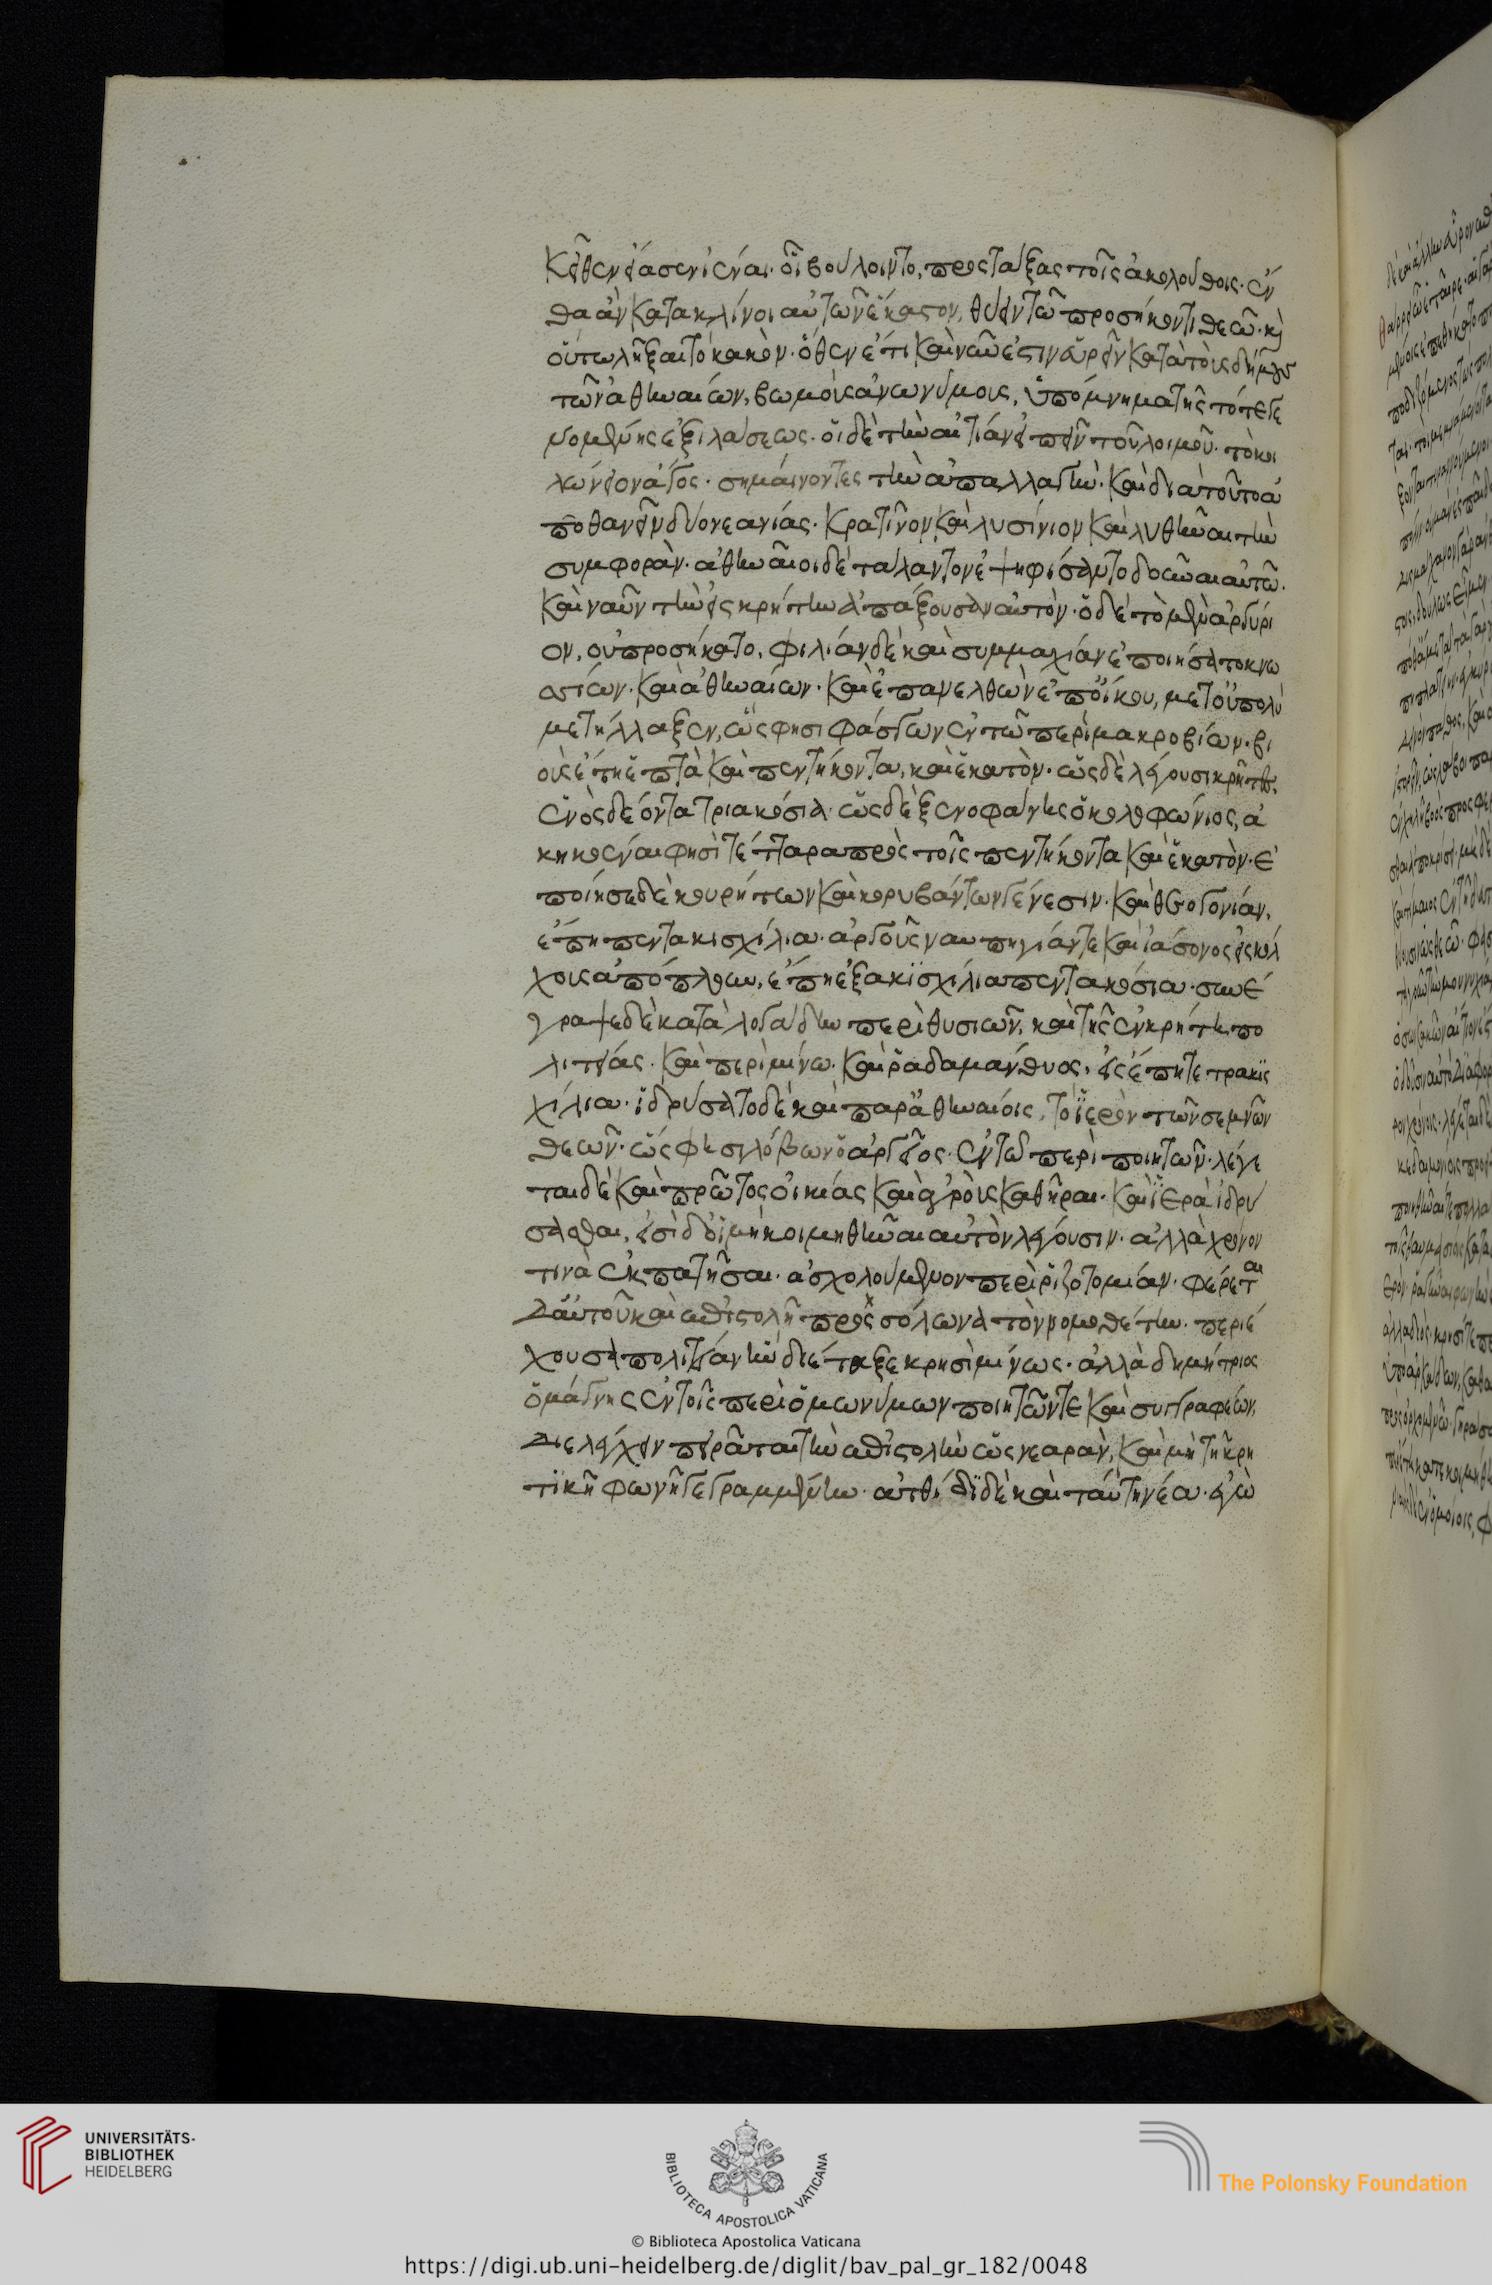 κεῖθεν εἴασεν ἰέναι οἷ βούλοιντο, προστάξας τοῖς ἀκολούθοις· ἔν
θα ἂν κατακλίνοι αὐτῶν ἕκαστον, θύειν τῶ προσήκοντι θεῶ· κὶ
οὕτω λῆξαι τὸ κακόν· ὅθεν ἔτι καὶ νῦν ἔστιν εὑρεῖν κατὰ τοὺς δήμους
τῶν ἀθηναίων, βωμοὺς ἀνωνύμους, ὑπόμνημα τῆς τότε γε
νομένης ἐξιλάσεως. οἱ δὲ τὴν αἰτίαν εἰπεῖν τοῦ λοιμοῦ. τὸ κυ
λώνειον ἄγος· σημαίνοντες τὴν ἀπαλλαγὴν· καὶ διὰ τοῦτο ἀ
ποθανεῖν δύο νεανίας· κρατῖνον καὶ λυσίνιον καὶ λυθῆναι τὴν
συμφοράν. ἀθηναῖοι δὲ τάλαντον ἐψηφίσαντο δοῦναι αὐτῶ.
καὶ ναῦν τὴν εἰς κρήτην ἀπάξουσαν αὐτόν· ὁ δὲ τὸ μὲν ἀργύρι
ον, οὐ προσήκατο, φιλίαν δὲ καὶ συμμαχίαν ἐποιήσατο κνω
σίων· καὶ ἀθηναίων· καὶ ἐπανελθὼν ἐπ' οἴκου, μετ' οὐ πολὺ
μετήλλαξεν, ὥς φησι φλέγων ἐν τῶ περὶ μακροβίων· βι
οὺς ἔτη ἑπτὰ καὶ πεντήκοντα, καὶ ἑκατόν· ὡς δὲ λέγουσι κρῆτες,
ἑνὸς δέοντα τριακόσια· ὡς δὲ ξενοφάνης ὁ κολοφώνιος, ἀ
κηκοέναι φησὶ τέτταρα πρὸς τοῖς πεντήκοντα καὶ ἑκατόν· ἐ
ποίησε δὲ κουρήτων καὶ κορυβάντων γένεσιν· καὶ θεογονίαν,
ἔπη πεντακισχίλια· ἀργοῦς ναυπηγίαν τε καὶ ἰάσονος εἰς κόλ
χους ἀπόπλουν, ἔπη ἑξακισχίλια πεντακόσια· συνέ
γραψε δὲ καταλογάδην περὶ θυσιῶν, καὶ τῆς ἐν κρήτη πο
λιτείας· καὶ περὶ μίνω· καὶ ῥαδαμάνθυος, εἰς ἔπη τετρακις
χίλια· ἱδρύσατο δὲ καὶ παρ' ἀθηναίοις, τὸ ἱερὸν τῶν σεμνῶν
θεῶν· ὥς φησι λόβων ὁ ἀργεῖος· ἐν τῶ περὶ ποιητῶν. λέγε
ται δὲ καὶ πρῶτος οἰκίας καὶ ἀγροὺς καθῆραι· καὶ ἱερὰ ἱδρύ
σασθαι, εἰσὶ δ' οἳ μὴ κοιμηθῆναι αὐτὸν λέγουσιν· ἀλλὰ χρόνον
τινὰ ἐκπατῆσαι· ἀσχολούμενον περὶ ῥιζοτομίαν· φέρεται
δ' αὐτοῦ καὶ ἐπιστολὴ πρὸς σόλωνα τὸν νομοθέτην. περιέ
χουσα πολιτείαν ἣν διέταξε κρησὶ μίνως· ἀλλὰ δημήτριος
ὁ μάγνης ἐν τοῖς περὶ ὁμωνύμων ποιητῶν τε καὶ συγγραφέων,
διελέγχειν πειρᾶται τὴν ἐπιστολὴν ὡς νεαράν, καὶ μὴ τῆ κρη
τικῆ φωνῆ γεγραμμένην· ἀτθίδι δὲ καὶ ταύτη νέα· ἐγὼ
UNIVERSITÄTS-
BIBLIOTHEK
HEIDELBERG
BIBLIOTECA APOSTOLICA VATICANA
The Polonsky Foundation
© Biblioteca Apostolica Vaticana
https://digi.ub.uni-heidelberg.de/diglit/bav_pal_gr_182/0048